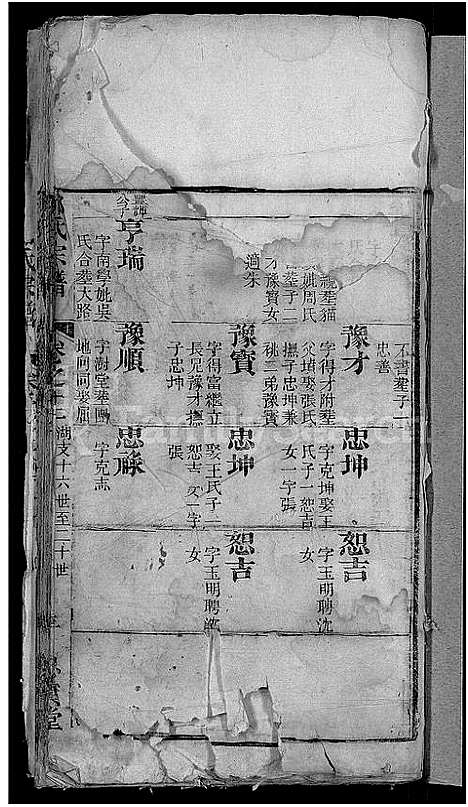 不書塟子一
忠善
豫才
字得才附塟
父墳娶張氏
撫子忠坤兼
祧二弟豫寳
忠坤
字克坤娶王
氏子一恕吉
女一字張
恕吉
字玉明聘沈
女
塟貓
姚周氏
塟子二
才豫寳女
適朱
豫寳
字得富繼立
長兄豫才撫
子忠坤
忠坤
娶王氏子一
恕吉女一字
張
恕吉
字玉明聘
女
亨瑞
字南學姚吳
氏合塟大路
豫順
字澍堂塟
地向同娶屈
忠祿
字克志
氏宗譜
卷之十二
湖支十六世至二十世
堂